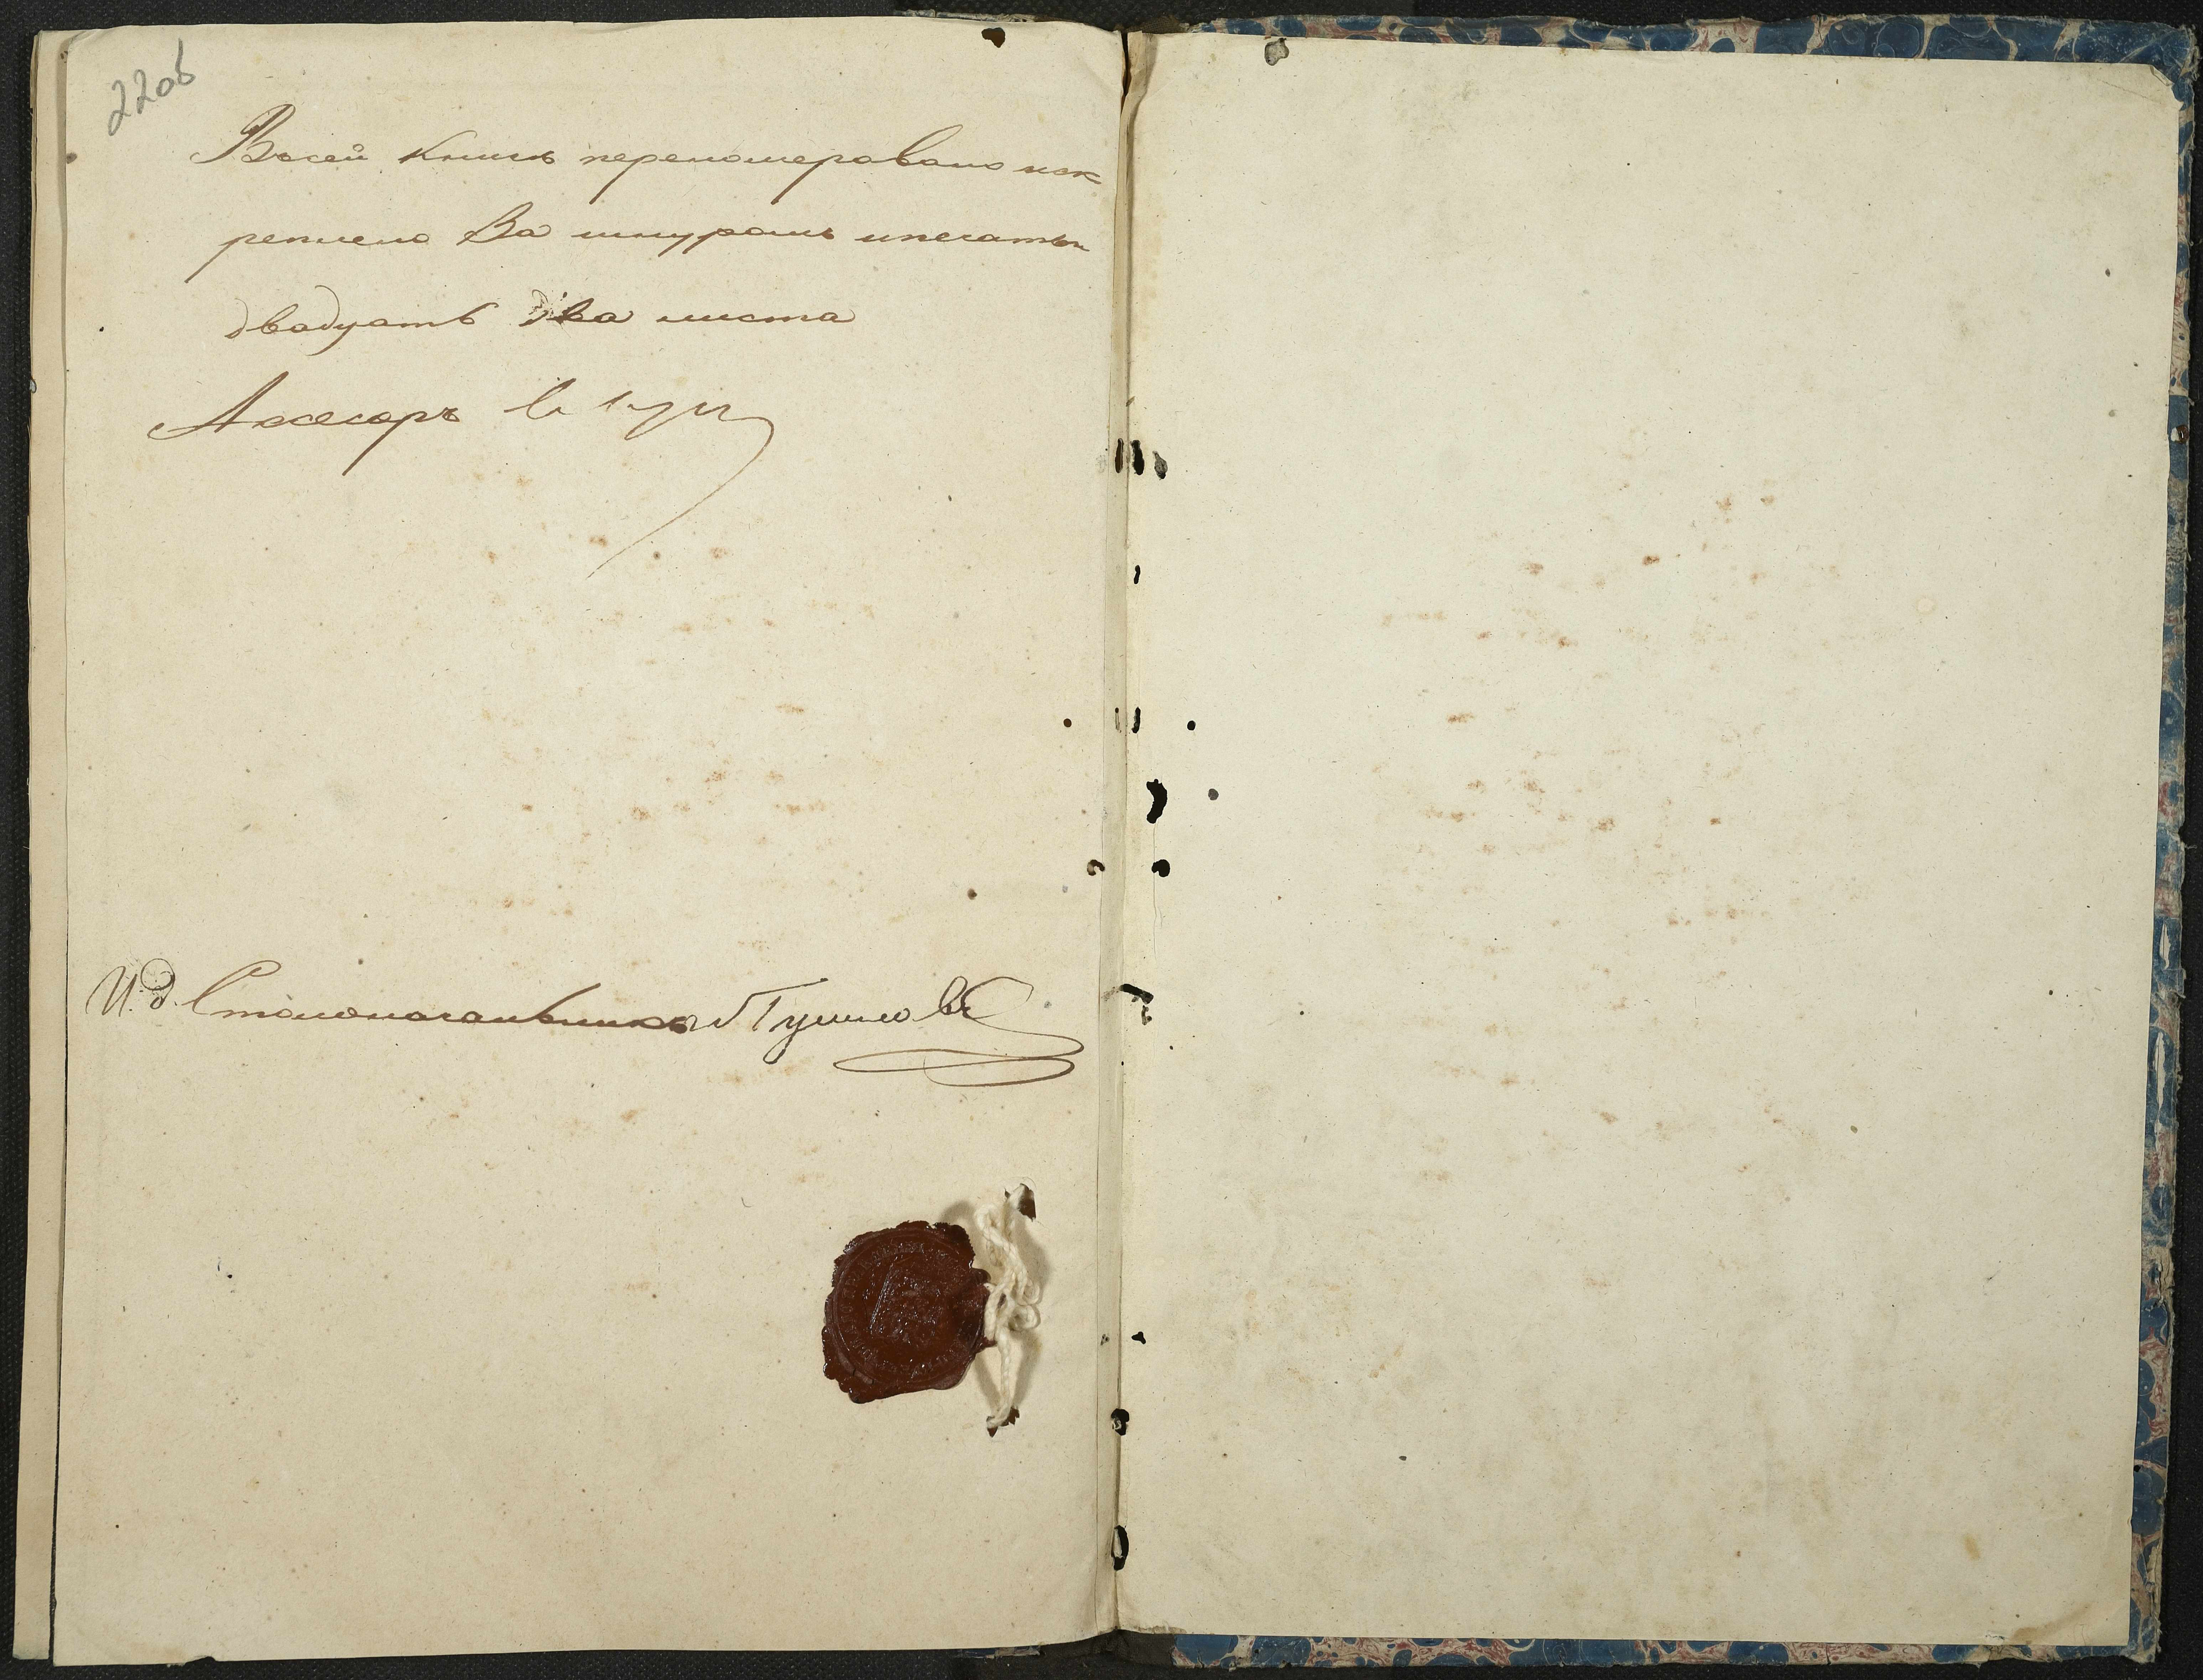 22об
Въсей книгѣ переномеравано иск
реплено За шнуромъ ипечатью
двадцать два листа
Ассесоръ
И. д. Столоначальника